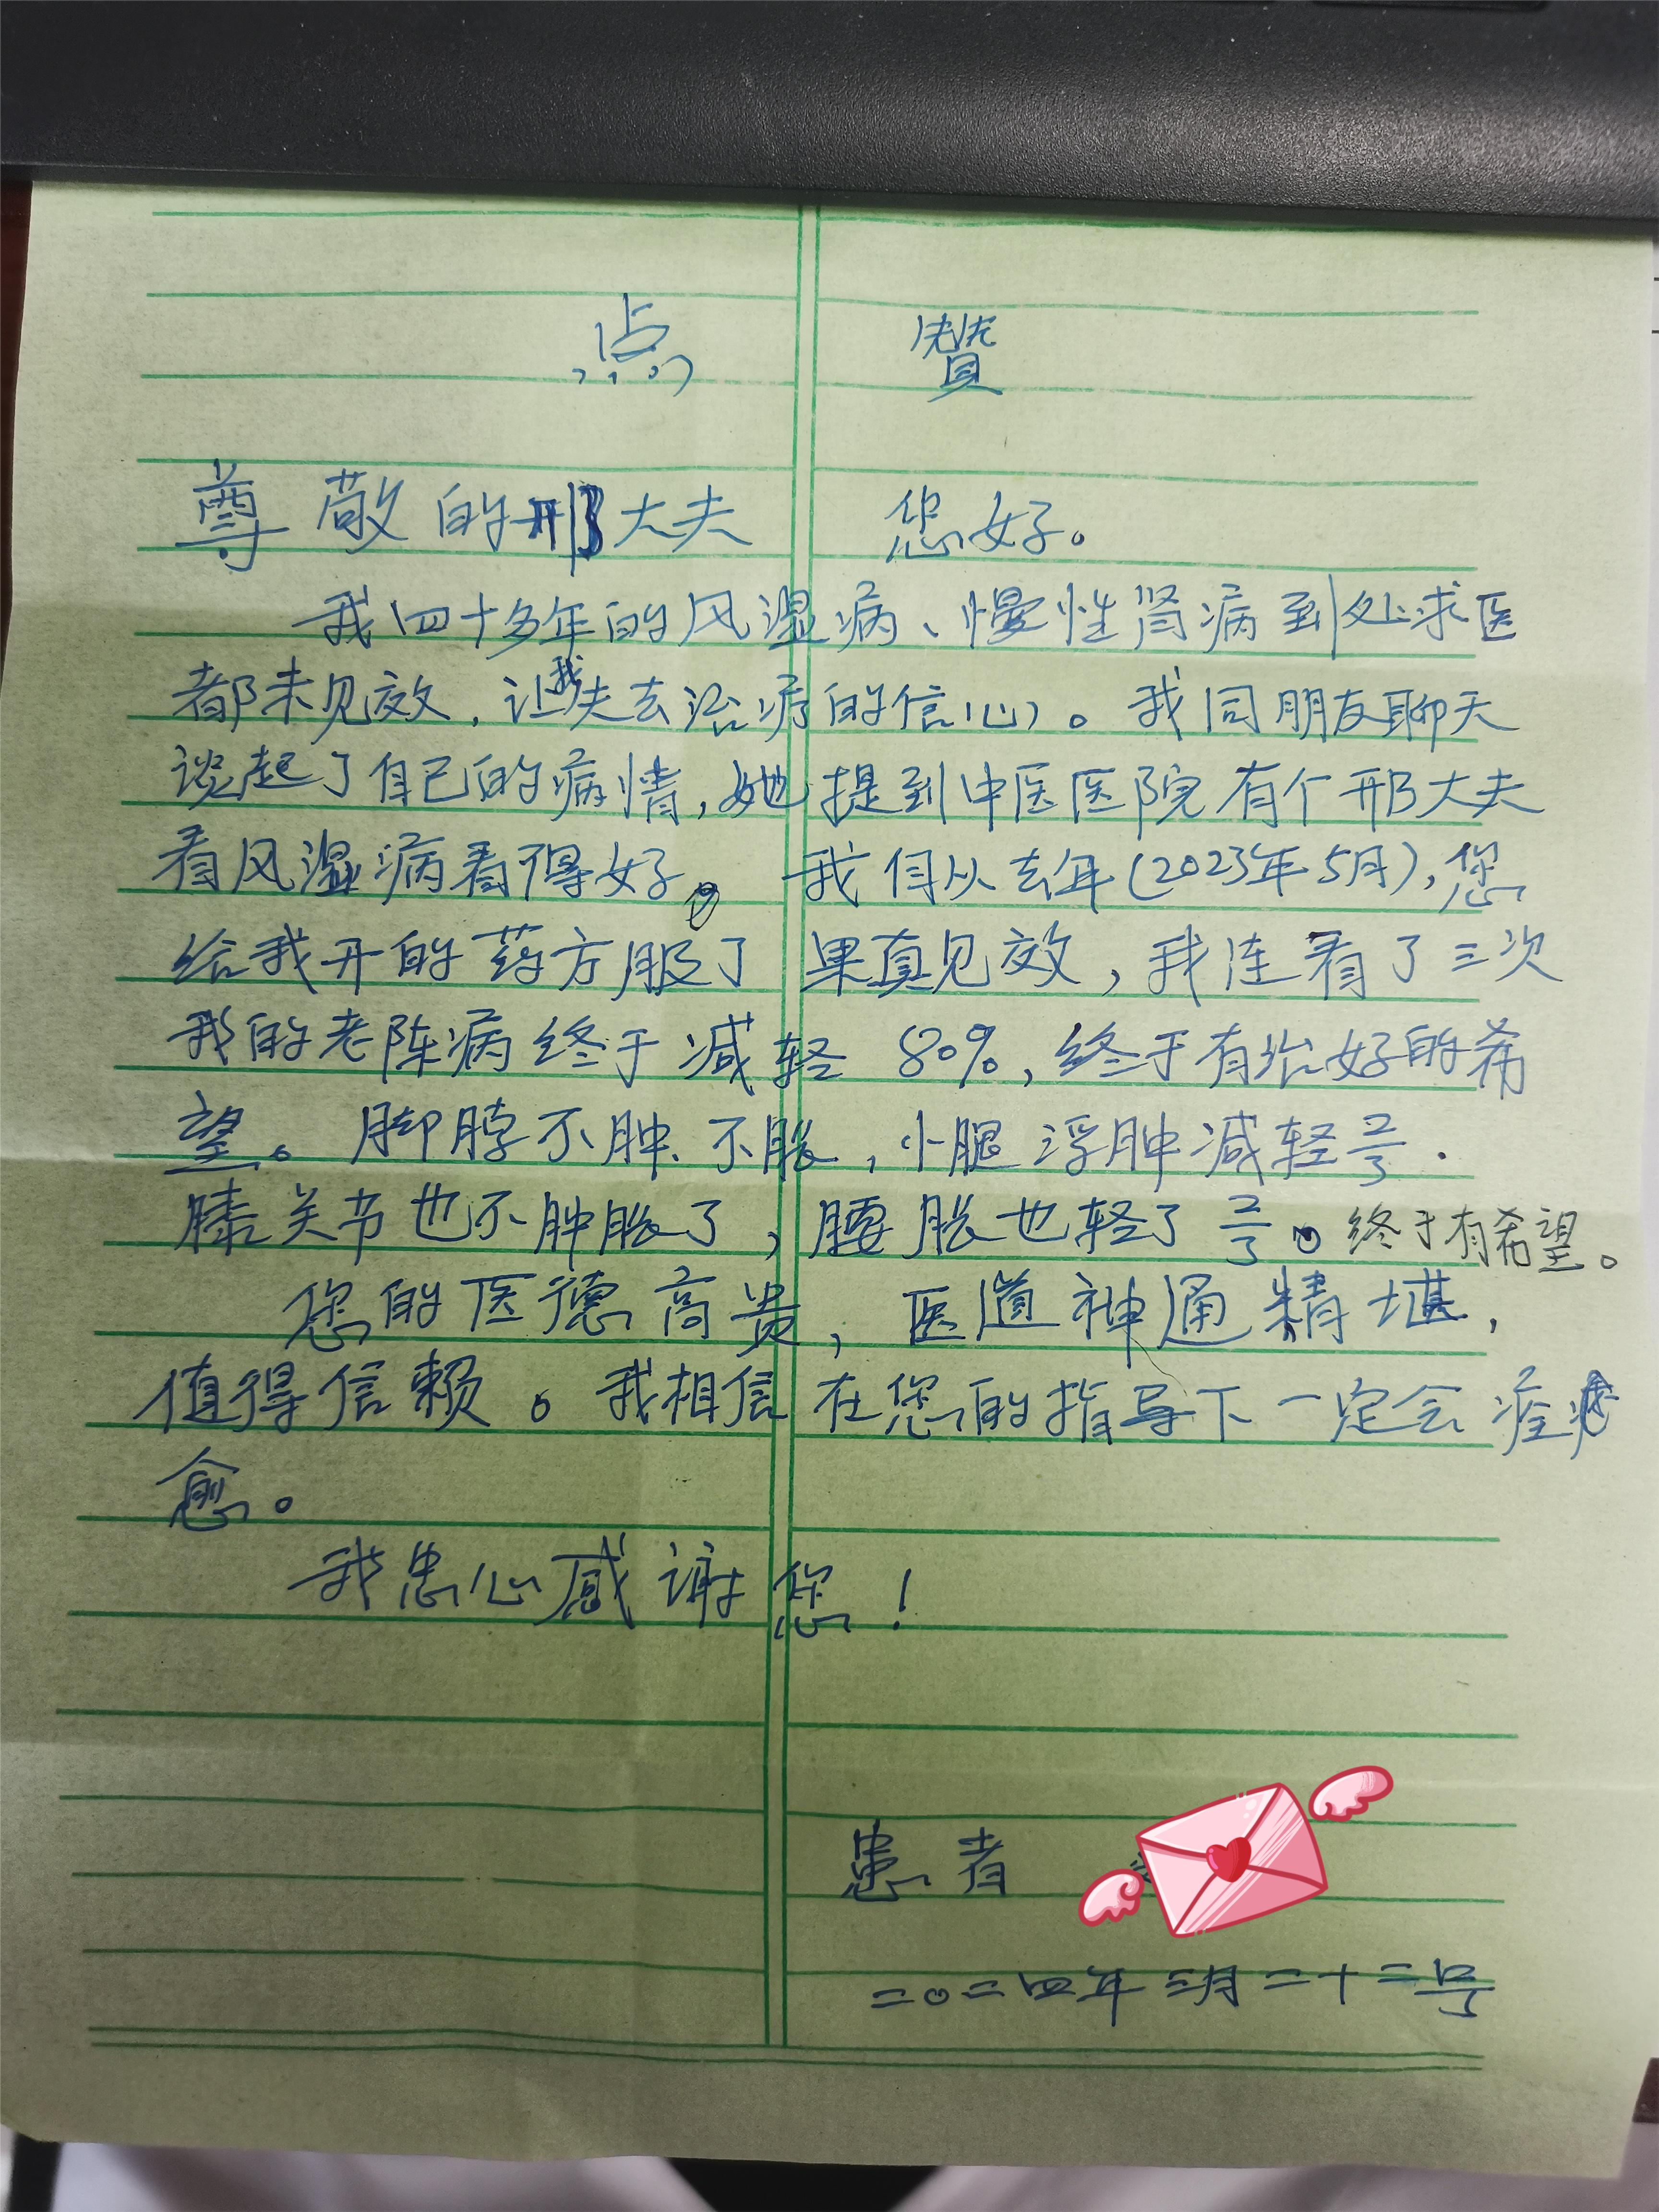 点 赞
尊敬的邢大夫 您好。
我四十多年的风湿病、慢性肾病到处求医
都未见效，让我失去治疗的信心。我同朋友聊天
谈起了自己的病情，她提到中医医院有个邢大夫
看风湿病看得好。我自从去年(2023年5月)，您
给我开的药方服了 果真见效，我连看了三次
我的老陈病终于减轻 80%，终于有治好的希
望。脚脖不肿、不胀，小腿浮肿减轻
膝关节也不肿胀了，腰胀也轻了 。终于有希望。
您的医德高贵，医道神通精堪，
值得信赖。我相信在您的指导下一定会痊
愈。
我忠心感谢您！
患者
二〇二四年三月二十二号